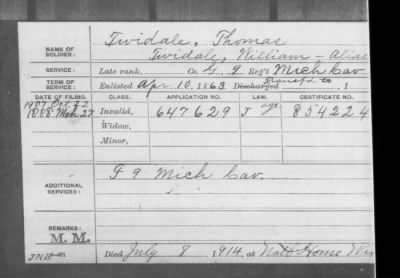 NAME OF SOLDIER: Twidale, Thomas
Twidale, William - Alias
SERVICE: Late rank, Co. G. 9 Reg't Mich Cav
TERM OF SERVICE: Enlisted Apr 10, 1863 Discharged Transf'd to, 1
DATE OF FILING. CLASS. APPLICATION NO. LAW. CERTIFICATE NO.
1907 Oct 22
1888 Mch. 27 Invalid, 647629 J age 854224
Widow,
Minor,
ADDITIONAL SERVICES: F 9 Mich Cav.
REMARKS:
M. M.
Died July 8, 1914, at Natl Home Wis